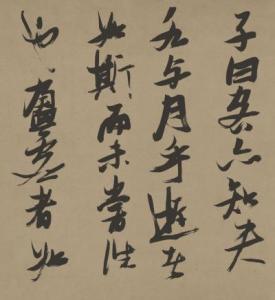 子曰客亦知夫
水与月乎逝者
如斯而未嘗往
也盈虚者如